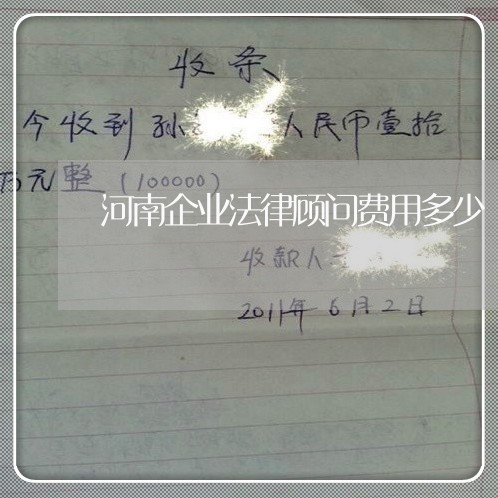 收条
今收到孙 人民币壹拾
万元整(100000)
河南企业法律顾问费用多少
收款人
2011年6月2日